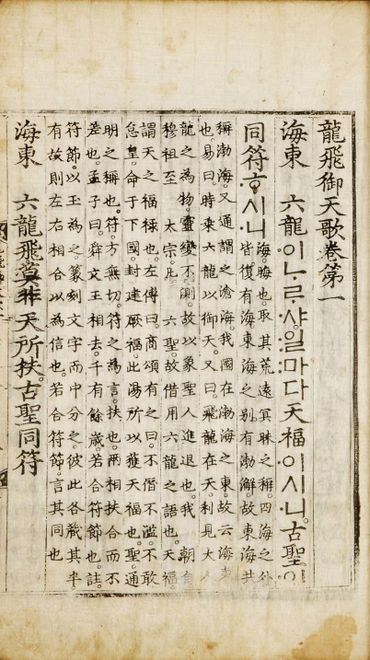 龍飛御天歌卷第一
海東 六龍이ᄂᆞᄅᆞ샤일마다天福이시니古聖이
同符ᄒᆞ시니
海。晦也。取其荒遠冥昧之稱。四海之外
皆復有海。東海之別有渤澥。故東海共
稱渤海。又通謂之滄海。我國在渤海之東。故云海東
也。易曰。時乘六龍以御天。又曰。飛龍在天。利見大人
龍之為物。靈變不測。故以象聖人進退也。我 朝自
穆祖至 太宗。凡 六聖。故借用六龍之語也。天福
謂天之福祿也。左傳曰。商頌有之曰。不僭不濫。不敢
怠皇。命于下國。封建厥福。此湯所以獲天福也。聖。通
明之稱也。符。方無切。符之為言扶也。兩相扶合而不
差也。孟子曰。舜文王相去。千有餘歲。若合符節也。註
符節。以玉為之。篆刻文字而中分之。彼此各藏其半
有故則左右相合以為信也。若合符節。言其同也
海東 六龍飛莫非天所扶古聖同符